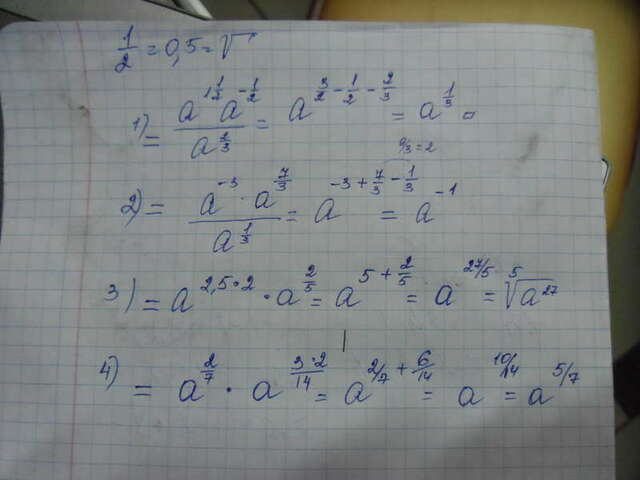 1/2 = 0,5 = √
1) = (a^(1 1/2) a^(-1/2)) / a^(2/3) = a^(3/2 - 1/2 - 2/3) = a^(1/3)
6/3 = 2
2) = (a^(-3) · a^(7/3)) / a^(1/3) = a^(-3 + 7/3 - 1/3) = a^(-1)
3) = a^(2,5·2) · a^(2/5) = a^(5 + 2/5) = a^(27/5) = ⁵√(a^27)
4) = a^(2/7) · a^((3·2)/14) = a^(2/7 + 6/14) = a^(10/14) = a^(5/7)